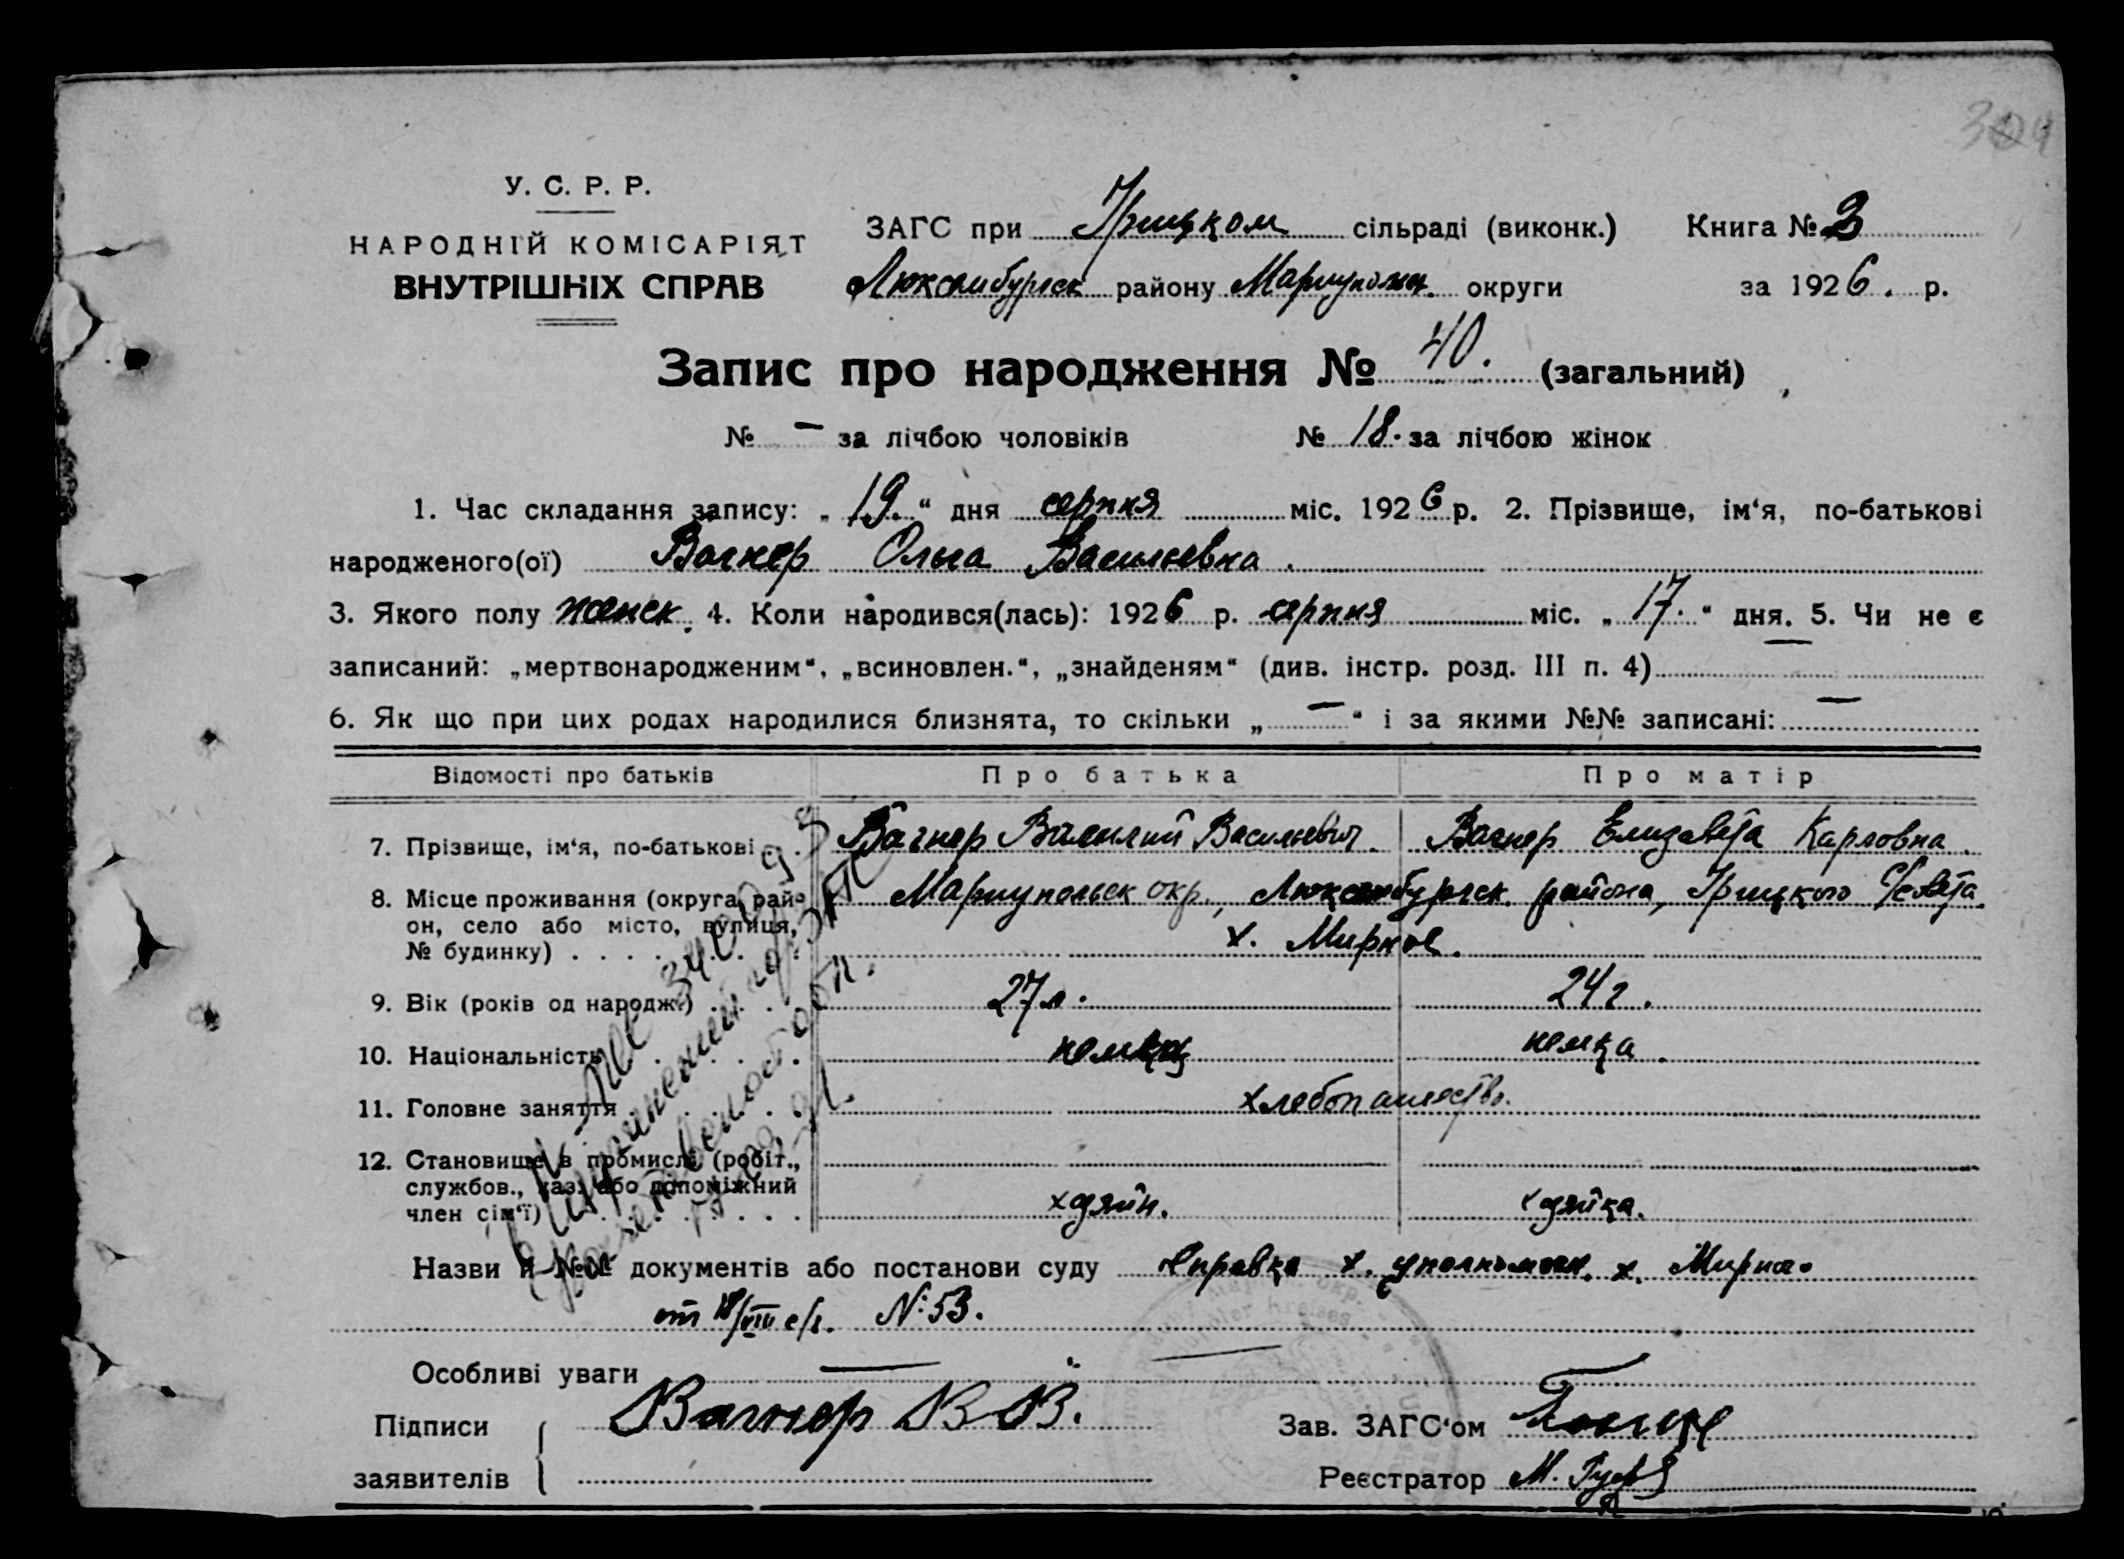 304
У. С. Р. Р.
НАРОДНІЙ КОМІСАРІЯТ
ВНУТРІШНІХ СПРАВ
ЗАГС при Грицком сільраді (виконк.) Книга № 3
Люксембургск району Мариупольск. округи за 1926. р.
Запис про народження № 40. (загальний)
№ — за лічбою чоловіків № 18. за лічбою жінок
1. Час складання запису: „19.“ дня серпня міс. 1926 р. 2. Прізвище, ім‘я, по-батькові
народженого(ої) Вагнер Ольга Васильевна.
3. Якого полу женск. 4. Коли народився(лась): 1926 р. серпня міс. „17.“ дня. 5. Чи не є
записаний: „мертвонародженим“, „всиновлен.“, „знайденям“ (див. інстр. розд. III п. 4) —
6. Як що при цих родах народилися близнята, то скільки „—“ і за якими №№ записані: —
Відомості про батьків Про батька Про матір
7. Прізвище, ім‘я, по-батькові . . Вагнер Василий Васильевич. Вагнер Елизавета Карловна.
8. Місце проживання (округа, рай- Мариупольск окр., Люксембургск. района, Грицкого С/Совета
он, село або місто, вулиця,
№ будинку) . . . . х. Мирное.
9. Вік (років од народж.) . . . 27 л. 24 г.
10. Національність . . . . немец немка.
11. Головне заняття . . . . хлебопашество.
12. Становище в промислі (робіт.,
службов., хаз. або допоміжний
член сім‘ї) . . . . хозяин. хозяйка.
Назви й №№ документів або постанови суду Справка х. уполномоч. х. Мирное
от 18/VIII с/г. №53.
Особливі уваги —
Підписи Вагнер В. В. Зав. ЗАГС‘ом
заявителів Реєстратор М.